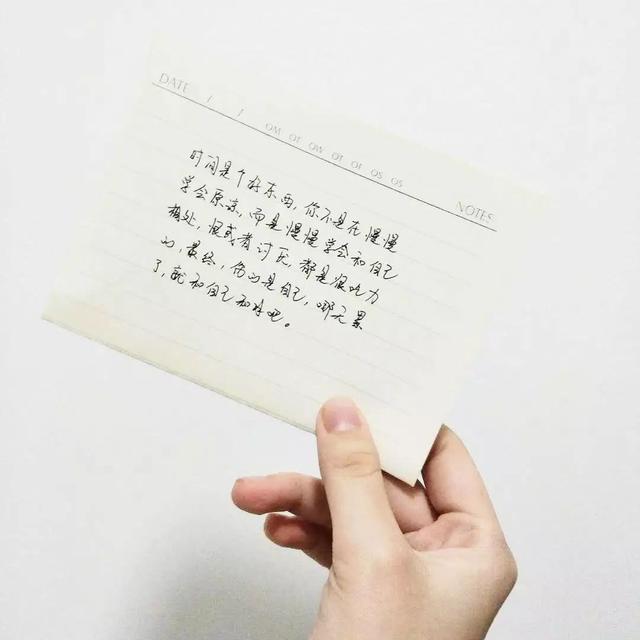 DATE / /
OM OT OW OT OF OS OS
NOTES
时间是个好东西，你不是在慢慢
学会原谅，而是慢慢学会和自己
相处，恨或者讨厌，都是很吃力
的，最终，伤的是自己，哪天累
了，就和自己和好吧。